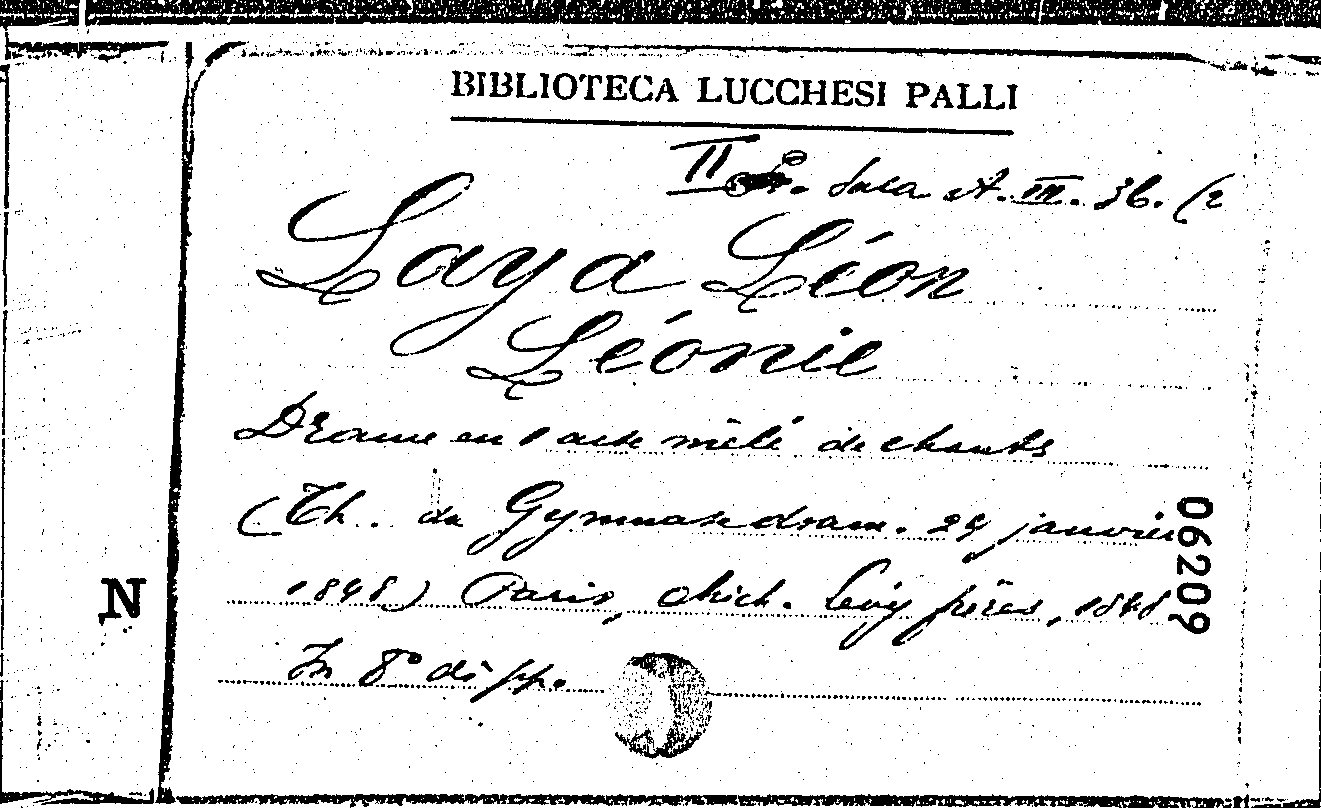 BIBLIOTECA LUCCHESI PALLI
II Sala A. III. 36. (2
Laya Léon
Léonie
Drame en 1 acte mêlé de chants
(Th. du Gymnase dram. 24 janvier
1848) Paris, Mich. Lévy frères, 1848
In 8° di pp.
06209
N